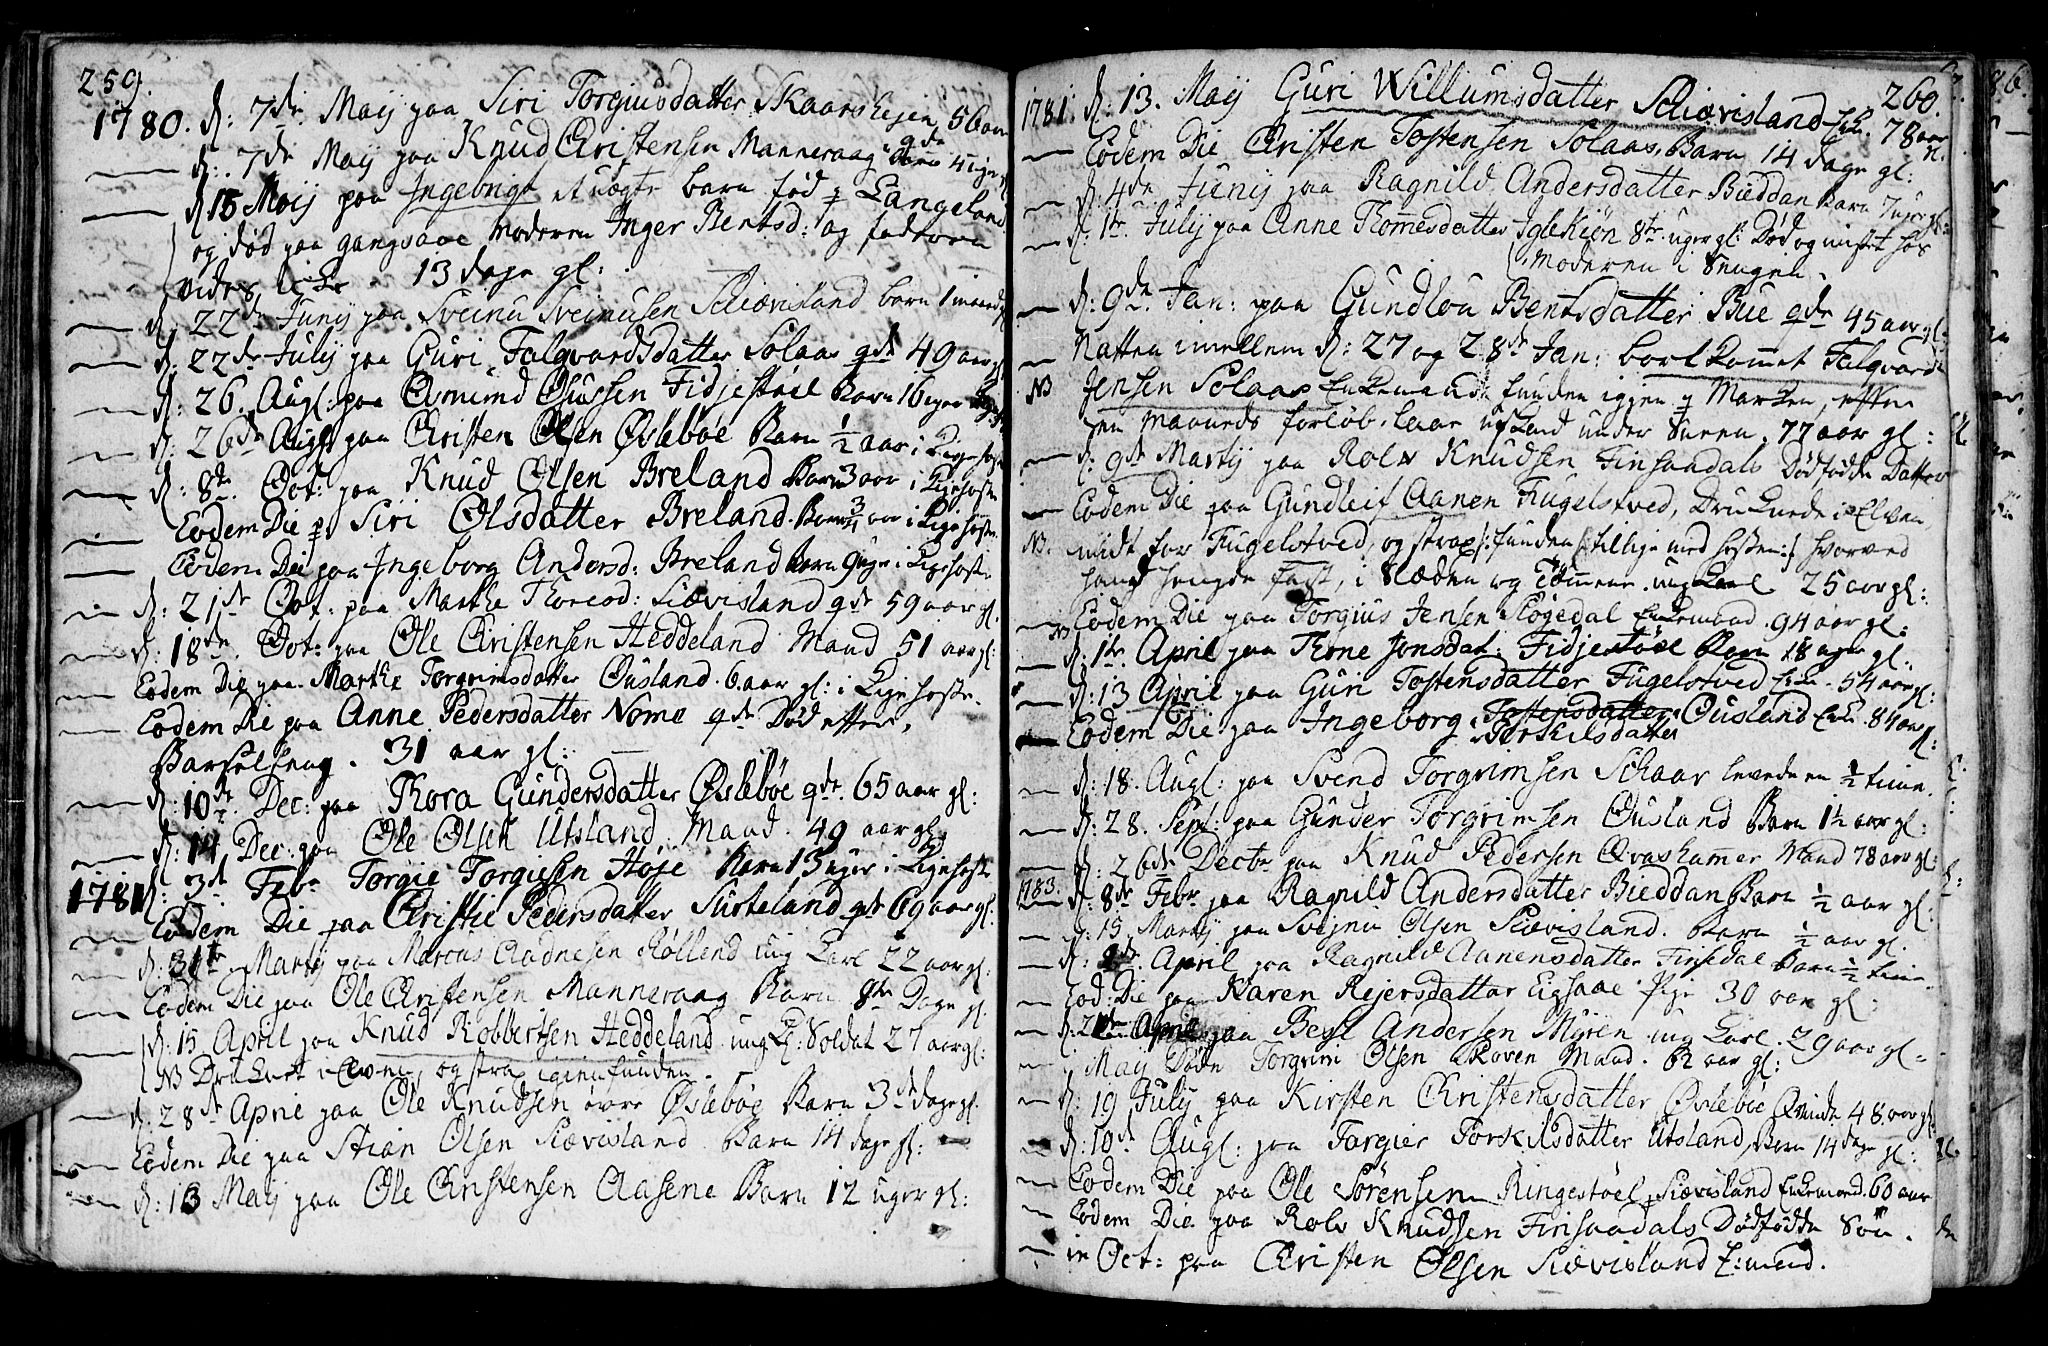 259.
1780. d: 7de Maij paa Siri Torgiusdatter Skaarehejen 56 aar
d: 7de Maij paa Knud Christensen Manneraag Barn 4 uger gl
d 15 Maij paa Ingebrigt et uægte barn fød p Langeland
og død paa Gangsaae Moderen Inger Bentsd: og faderen
vides icke 13 dage gl:
d. 22de Junij paa Sveinu Sveinusen Schiævisland barn 1 maaned
d: 22de Julij paa Guri Falqvardsdatter Solaas qde 49 aar gl
d: 26. Augl: paa Osmund Osuldsen Fidjestøel Barn 16 uger
d: 26de Augl paa Christen Olsen Øslebøe Barn ½ aar i Kigehoste
d: 8de Oct: paa Knud Olsen Breland Barn 3 aar i Kigehoste
Eodem Die p Siri Olsdatter Breland. Barn ¾ aar i Kigehoste.
Eodem Die paa Ingeborg Andersd: Breland barn 9 uger i Kigehoste
d: 21de Oct: paa Marthe Thoresd: Siævisland qde 59 aar gl.
d: 18de Oct: paa Ole Christensen Heddeland Mand 51 aar gl:
Eodem Die paa Marthe Torgrimsdatter Ousland. 6. aar gl: i Kigehoste.
Eodem Die paa Anne Pedersdatter Nome qde Død efter
Barselseng. 31 aar gl:
d: 10de Dec: paa Thora Gundersdatter Øslebøe qde. 65 aar gl:
d: 14 Dec: paa Ole Olsen Utsland. Mand. 49 aar gl.
1781 d: 3de Febr Torgie Torgiesen Høje Barn 13 uger i Kigehoste
Eodem Die paa Christie Pedersdatter Surteland qde 69 aar gl:
d: 31te Martij paa Marcus Aadnesen Røllend ung Karl 22 aar gl:
Eodem Die paa Ole Christensen Manneraag Barn 8te Dage gl
d: 15 April paa Knud Robbertsen Heddeland ung K: Soldat 27 aar gl:
NB Druknet i Elven, og strax igien funden.
d. 28de April paa Ole Knudsen øvre Øslebøe Barn 3de dage gl.
Eodem Die paa Stian Olsen Siævisland. Barn 14 dage gl:
d: 13 Maij paa Ole Christensen Aasene Barn 12 uger gl:
260.
1781. d: 13. Maij Guri Willumsdatter Schiævisland Enk. 78 aar
Eodem Die Christen Tostensen Solaas. Barn 14 dage gl:
d. 4de Junij paa Ragnild Andersdatter Buddan Barn 7 uger gl:
d: 1te Julij paa Anne Thomesdatter Iglekiøn 8te uger gl: Død og mistet hos
Moderen i Sengen.
d: 9de Jan: paa Gundlou Bentsdatter Bue qde 45 aar gl:
Natten imellem d: 27 og 28de Jan: bortkommet Falqvard
NB Jensen Solaas Enkemand. funden igien p Marken, efter
en Maaneds forløb. laae under Sneen. 77 aar gl:
d: 9de Martij paa Rolv Knudsen Finsaadals Dødfødde Datter
Eodem Die paa Gundleif Aanen Fugelstved, Druknede i Elven
NB. midt for Fugelstved, og strax funden tillige med hesten: hvorved
hand hengde fast, i Slæden og Tømmene. ung Karl 25 aar gl:
Eodem Die paa Torgius Jensen Fløgedal Enkemand. 94 aar gl:
NB d: 1te April paa Thone Jonsdat: Fidjestøel Barn 18 uger gl.
d: 13 April paa Guri Tostensdatter Fugelstved Enk. 54 aar gl:
Eodem Die paa Ingeborg Tostensdatter Ousland Enk. 84 aar gl:
Terkilsdatter
d: 18. Augl: paa Svend Torgrimsen Schaar levede en ½ time.
d: 28. Sept: paa Gunder Torgrimsen Ousland Barn 1½ aar gl:
d: 26de Decbr paa Knud Pedersen Qvashammer Mand 78 aar gl:
1783. d: 8de Febr paa Ragnild Andersdatter Buddan Barn ½ aar gl:
d: 15. Martij paa Svejnu Olsen Siævisland. Barn ½ aar gl.
d: April paa Ragnild Aanensdatter Finsdal Barn ½ time.
Eod: Die paa Karen Rejersdatter Eigsaae Pige 30 aar gl:
d. 21de April paa Bent Andersen Myren ung Karl. 29 aar gl
i Maij Døde Torgrim Olsen Skoven Mand. 62 aar gl:
d: 19 Julij paa Kirsten Christensdatter Øslebøe Qvinde 48 aar gl
d: 10de Augl: paa Targier Torkildsdatter Utsland, Barn 14 dage gl:
Eodem Die paa Ole Sørensen Ringestøel Siævisland Enkemand. 60 aar
Eodem Die paa Rolv Knudsen Finsaadals Dødfødde Søn.
in Oct: paa Christen Olsen Siævisland E:mand.